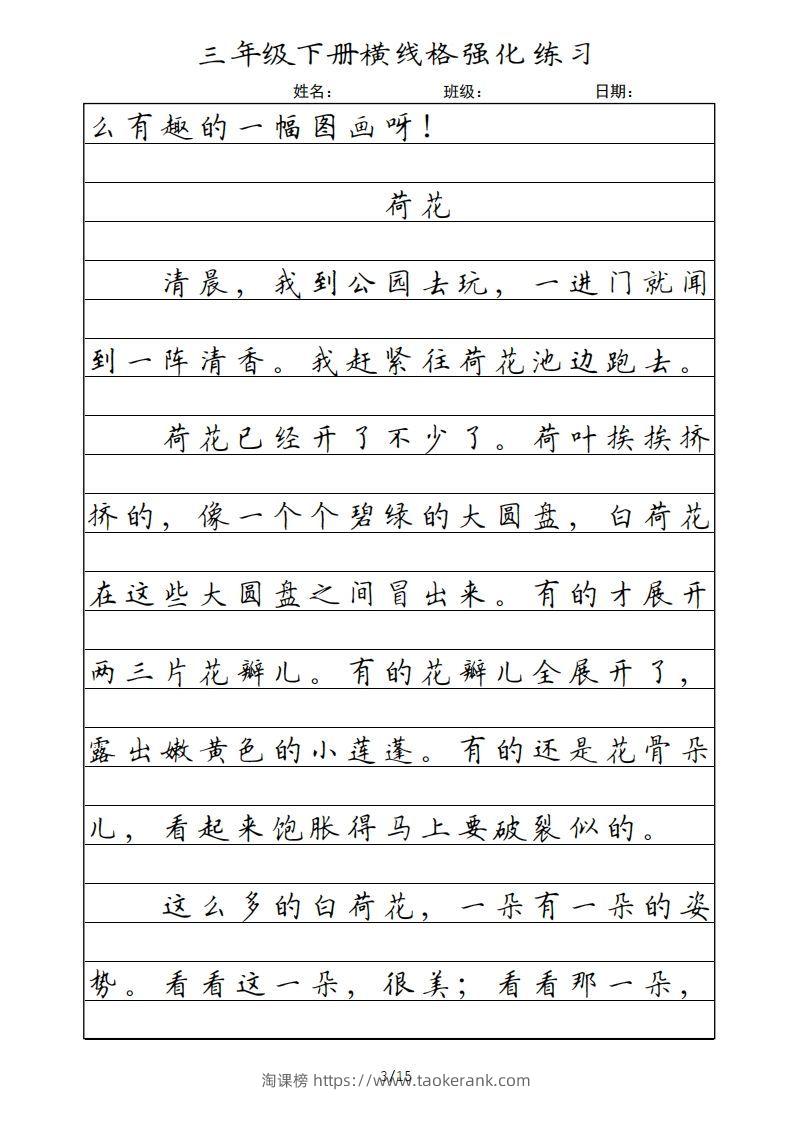 三年级下册横线格强化练习
姓名： 班级： 日期：
么有趣的一幅图画呀！
荷花
清晨，我到公园去玩，一进门就闻
到一阵清香。我赶紧往荷花池边跑去。
荷花已经开了不少了。荷叶挨挨挤
挤的，像一个个碧绿的大圆盘，白荷花
在这些大圆盘之间冒出来。有的才展开
两三片花瓣儿。有的花瓣儿全展开了，
露出嫩黄色的小莲蓬。有的还是花骨朵
儿，看起来饱胀得马上要破裂似的。
这么多的白荷花，一朵有一朵的姿
势。看看这一朵，很美；看看那一朵，
3/15
淘课榜 https://www.taokerank.com